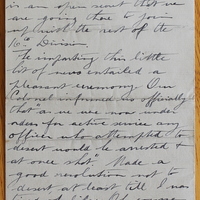 is an open secret that we
are going there to join
up with the rest of the
16th Division
The imparting this little
bit of news entailed a
pleasant ceremony Our
Colonel informed us officially
that as we are now under
orders for active service any
officer who attempted to
desert would be arrested &
at once shot Made a
good resolution not to
desert at least till I was